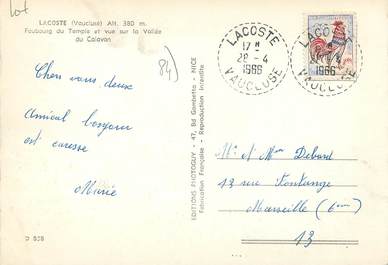 Lot
LACOSTE (Vaucluse) Alt. 380 m.
Faubourg du Temple et vue sur la Vallée
du Calavon
84)
Chers vous deux
Amical bonjour
et caresse
Marie
D 828
EDITIONS PHOTOGUY - 47, Bd Gambetta - NICE
Fabrication Française - Reproduction interdite
LACOSTE
17 H
28 - 4
1966
VAUCLUSE
LACOSTE
1966
VAUCLUSE
Mr et Mme Debard
13 rue Fontange
Marseille (6eme)
13